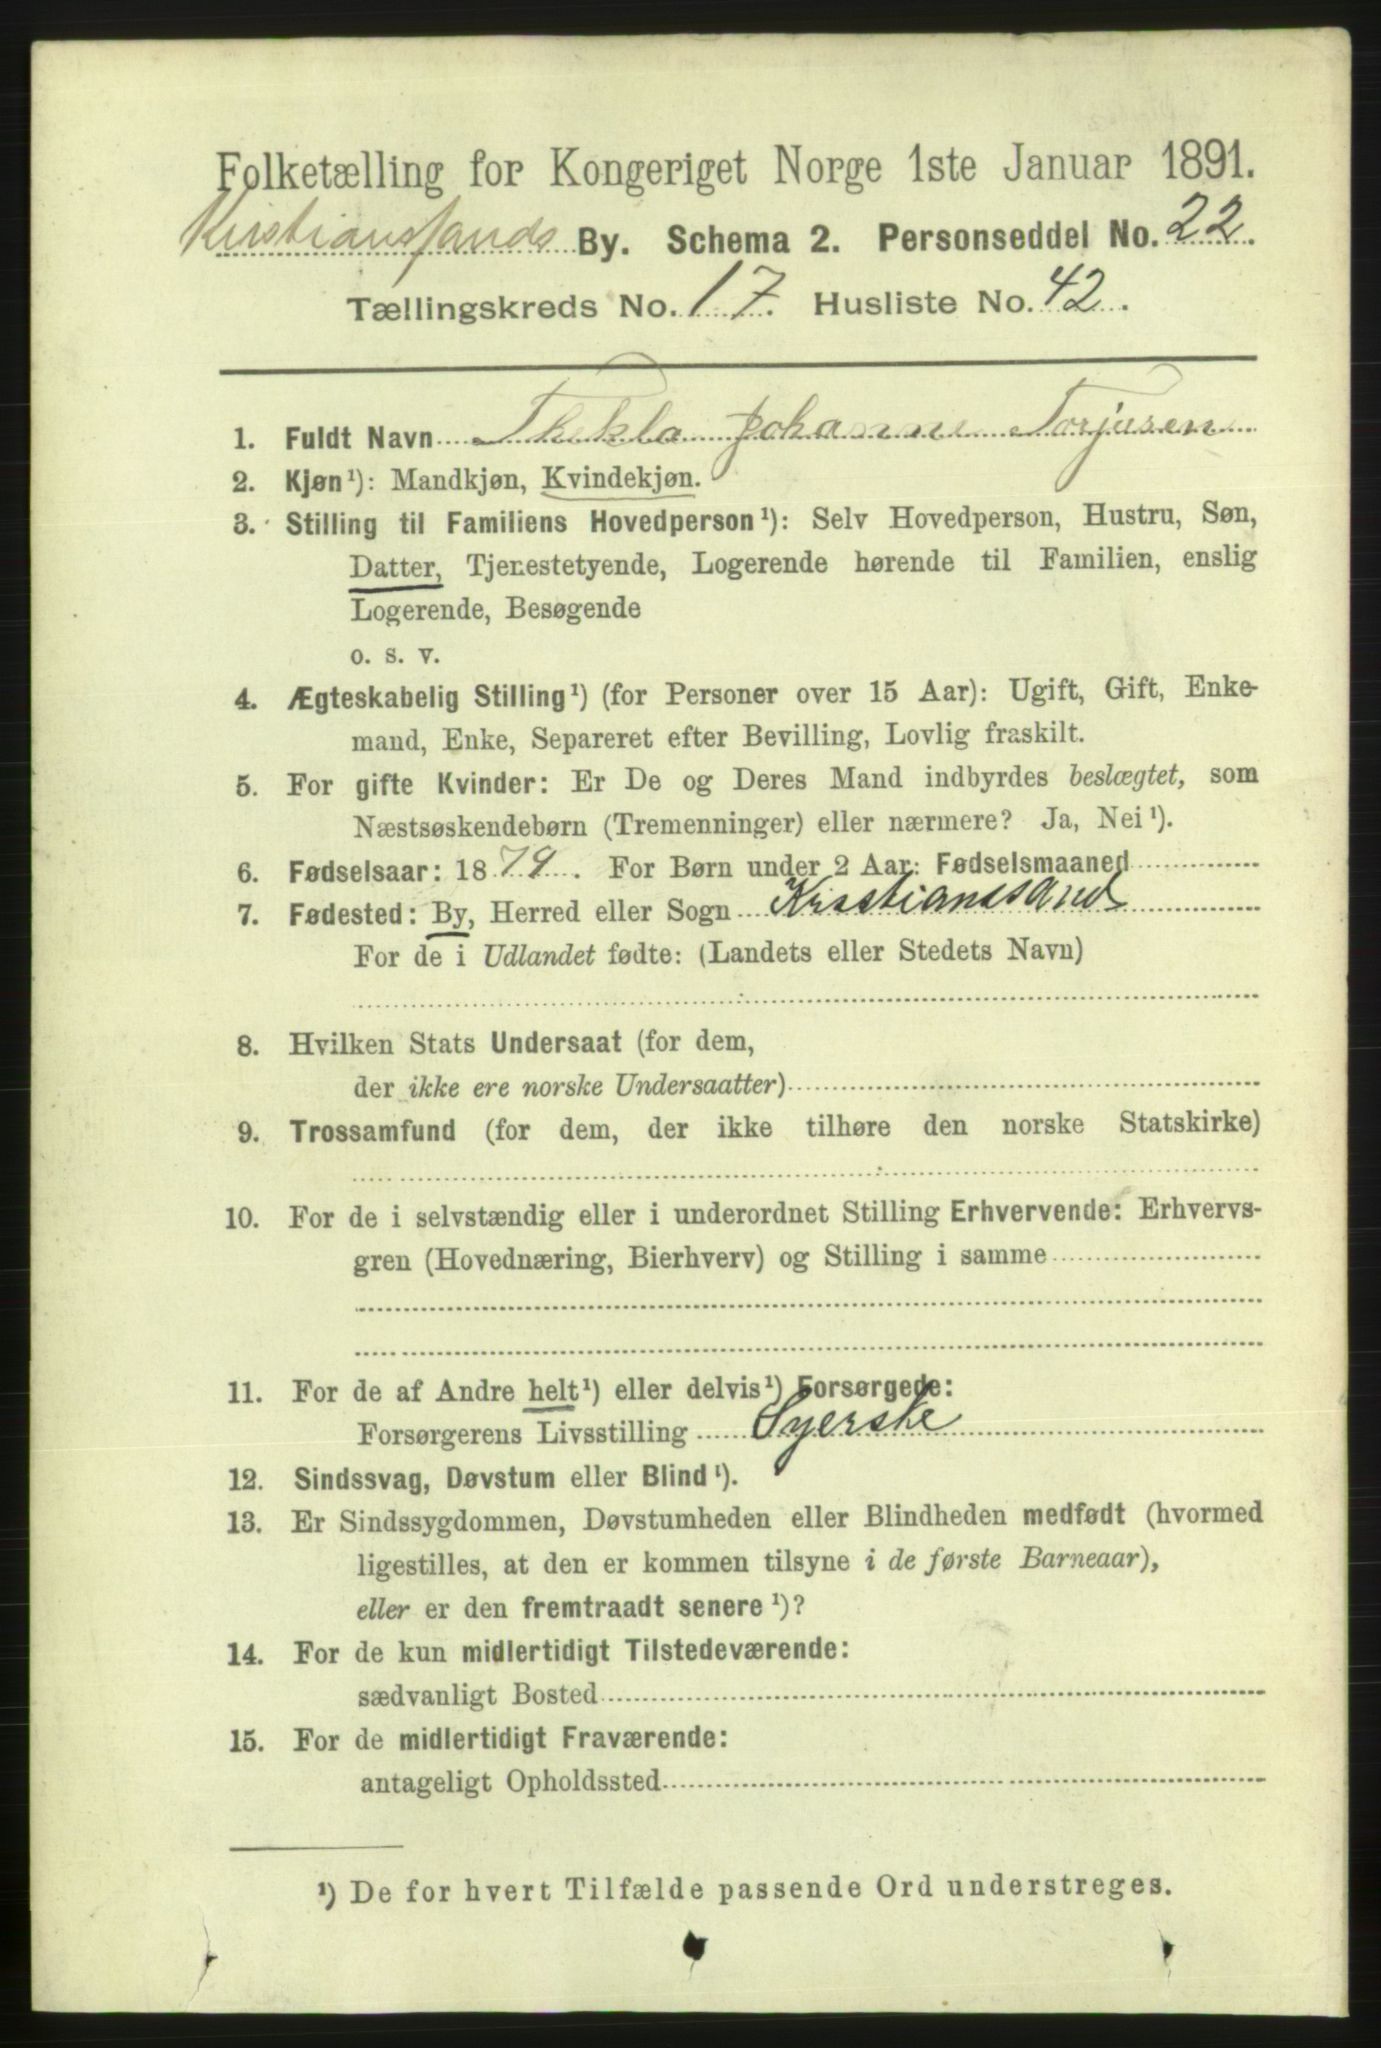 Folketælling for Kongeriget Norge 1ste Januar 1891.
Kristianssands By. Schema 2. Personseddel No. 22.
Tællingskreds No. 17. Husliste No. 42.
1. Fuldt Navn Thekla Johanne Torjusen
2. Kjøn¹): Mandkjøn, Kvindekjøn.
3. Stilling til Familiens Hovedperson¹): Selv Hovedperson, Hustru, Søn,
Datter, Tjenestetyende, Logerende hørende til Familien, enslig
Logerende, Besøgende
o. s. v.
4. Ægteskabelig Stilling¹) (for Personer over 15 Aar): Ugift, Gift, Enke-
mand, Enke, Separeret efter Bevilling, Lovlig fraskilt.
5. For gifte Kvinder: Er De og Deres Mand indbyrdes beslægtet, som
Næstsøskendebørn (Tremenninger) eller nærmere? Ja, Nei¹).
6. Fødselsaar: 1879. For Børn under 2 Aar: Fødselsmaaned
7. Fødested: By, Herred eller Sogn Kristianssand
For de i Udlandet fødte: (Landets eller Stedets Navn)
8. Hvilken Stats Undersaat (for dem,
der ikke ere norske Undersaatter)
9. Trossamfund (for dem, der ikke tilhøre den norske Statskirke)
10. For de i selvstændig eller i underordnet Stilling Erhvervende: Erhvervs-
gren (Hovednæring, Bierhverv) og Stilling i samme
11. For de af Andre helt¹) eller delvis¹) Forsørgede:
Forsørgerens Livsstilling Syerske
12. Sindssvag, Døvstum eller Blind¹).
13. Er Sindssygdommen, Døvstumheden eller Blindheden medfødt (hvormed
ligestilles, at den er kommen tilsyne i de første Barneaar),
eller er den fremtraadt senere¹)?
14. For de kun midlertidigt Tilstedeværende:
sædvanligt Bosted
15. For de midlertidigt Fraværende:
antageligt Opholdssted
¹) De for hvert Tilfælde passende Ord understreges.